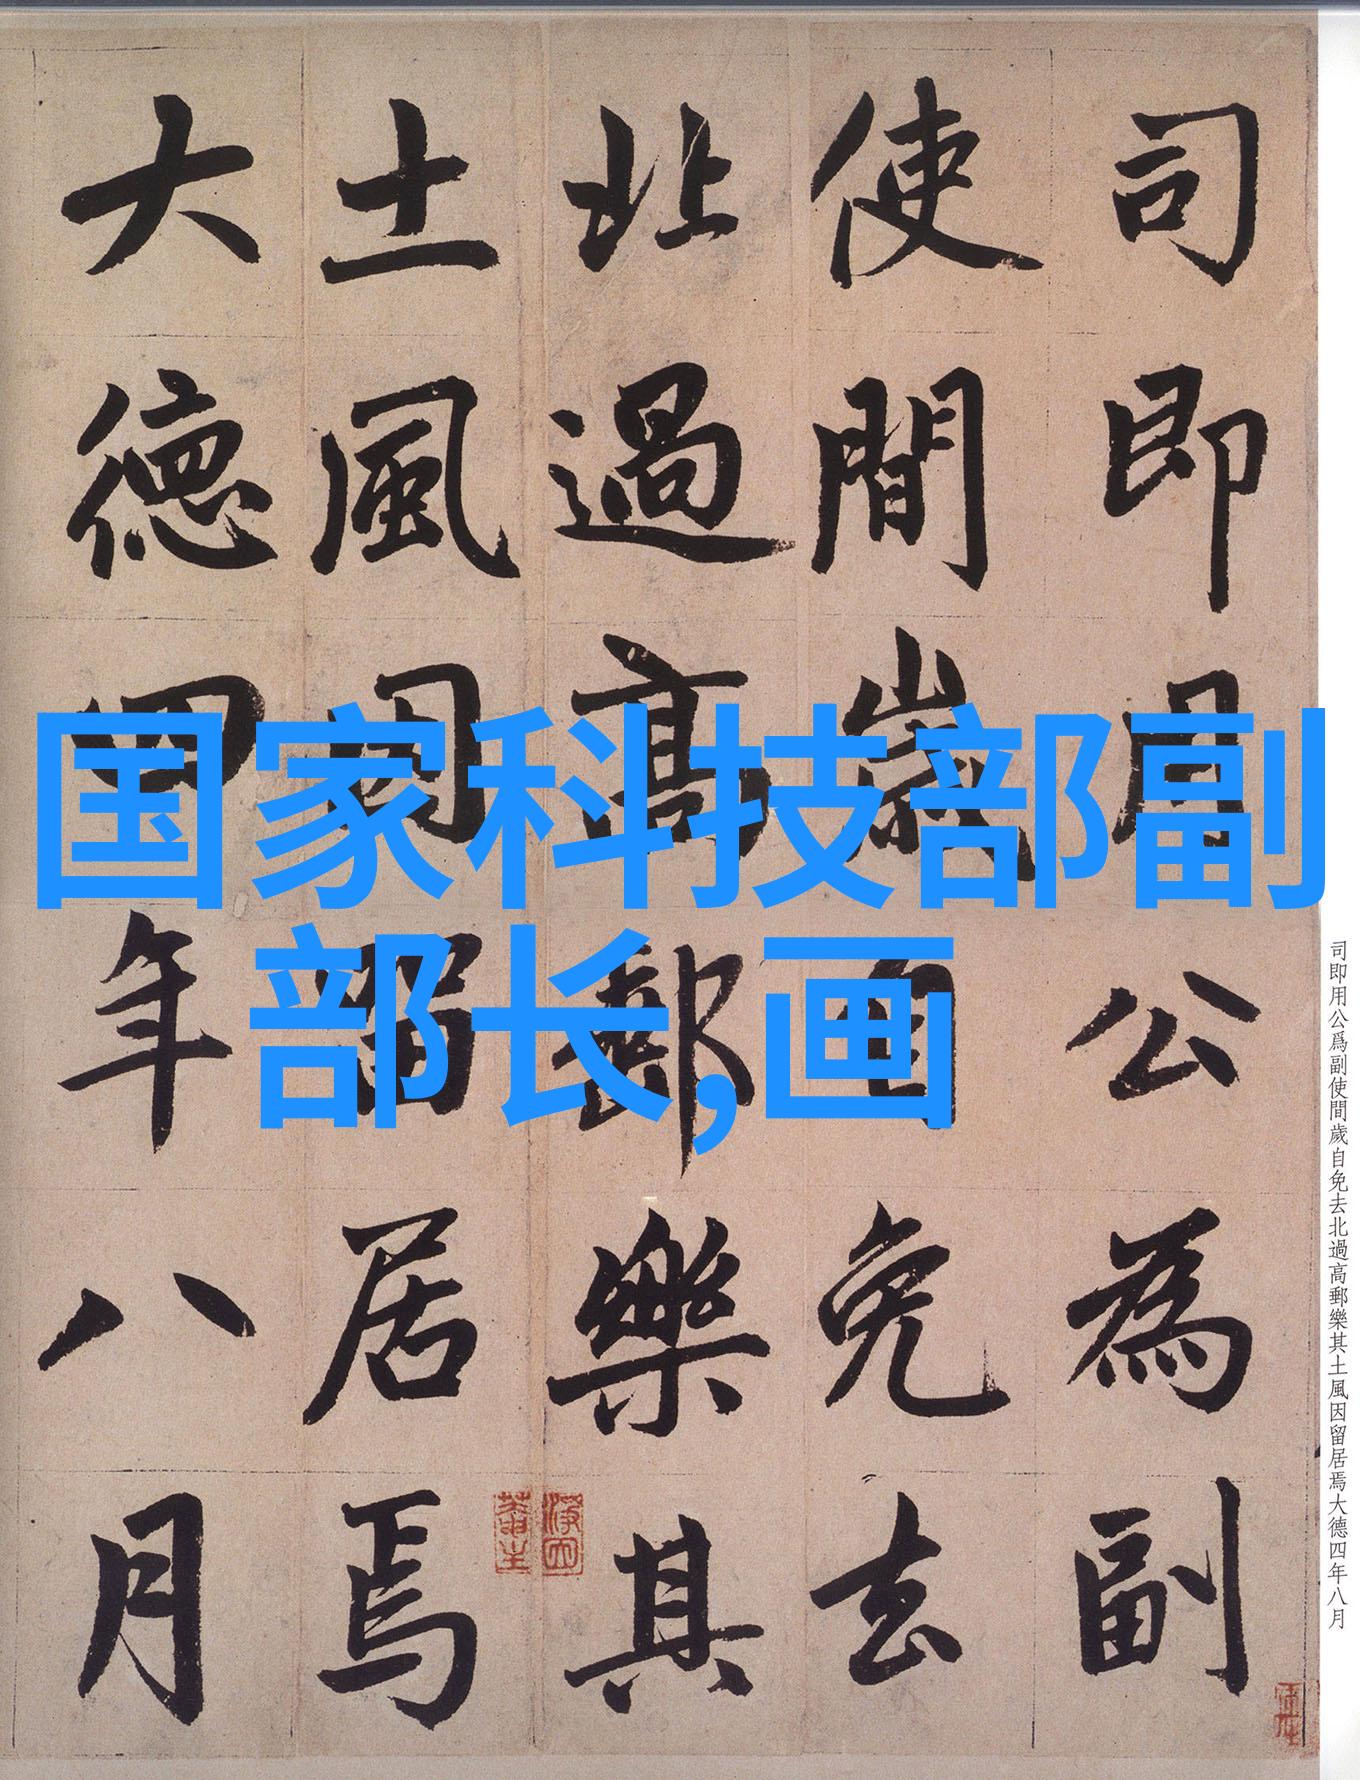 司即用公為副
使間歲自免去
北過高郵樂其
土風因留居焉
大德四年八月
国家科技部副
部长,画
司即用公爲副使間歲自免去北過高郵樂其土風因留居焉大德四年八月